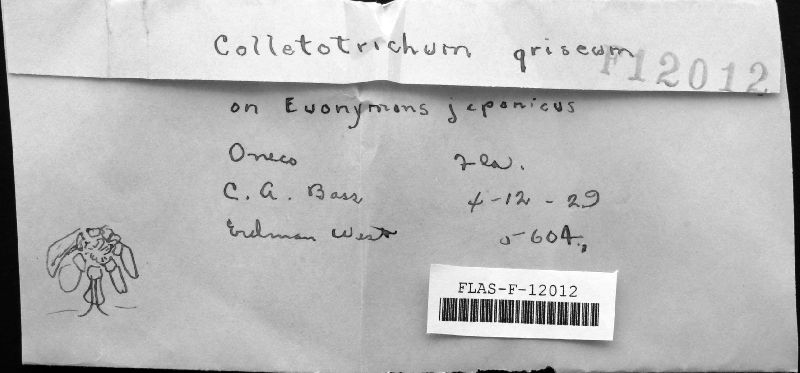 Colletotrichum griseum
F12012
on Euonymons japonicus
Oneco Fla.
C. A. Bass 4-12-29
Erdman West 5-604
FLAS-F-12012